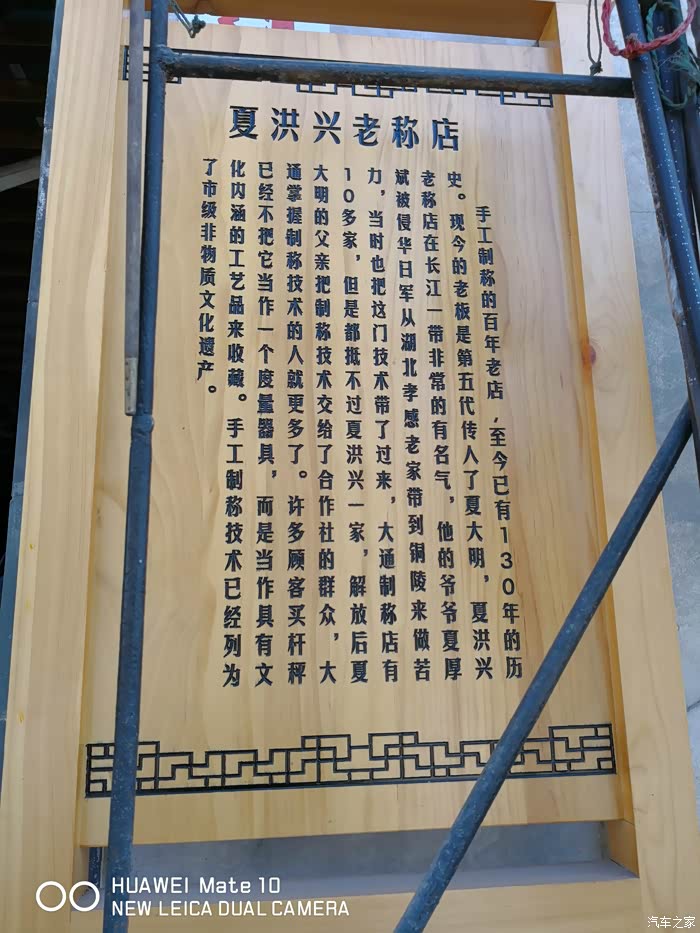 夏洪兴老称店
手工制称的百年老店,至今已有130年的历
史。现今的老板是第五代传人了夏大明，夏洪兴
老称店在长江一带非常的有名气，他的爷爷夏厚
斌被侵华日军从湖北孝感老家带到铜陵来做苦
力，当时也把这门技术带了过来，大通制称店有
10多家，但是都抵不过夏洪兴一家，解放后夏
大明的父亲把制称技术交给了合作社的群众，大
通掌握制称技术的人就更多了。许多顾客买杆秤
已经不把它当作一个度量器具，而是当作具有文
化内涵的工艺品来收藏。手工制称技术已经列为
了市级非物质文化遗产。
HUAWEI Mate 10
NEW LEICA DUAL CAMERA
汽车之家